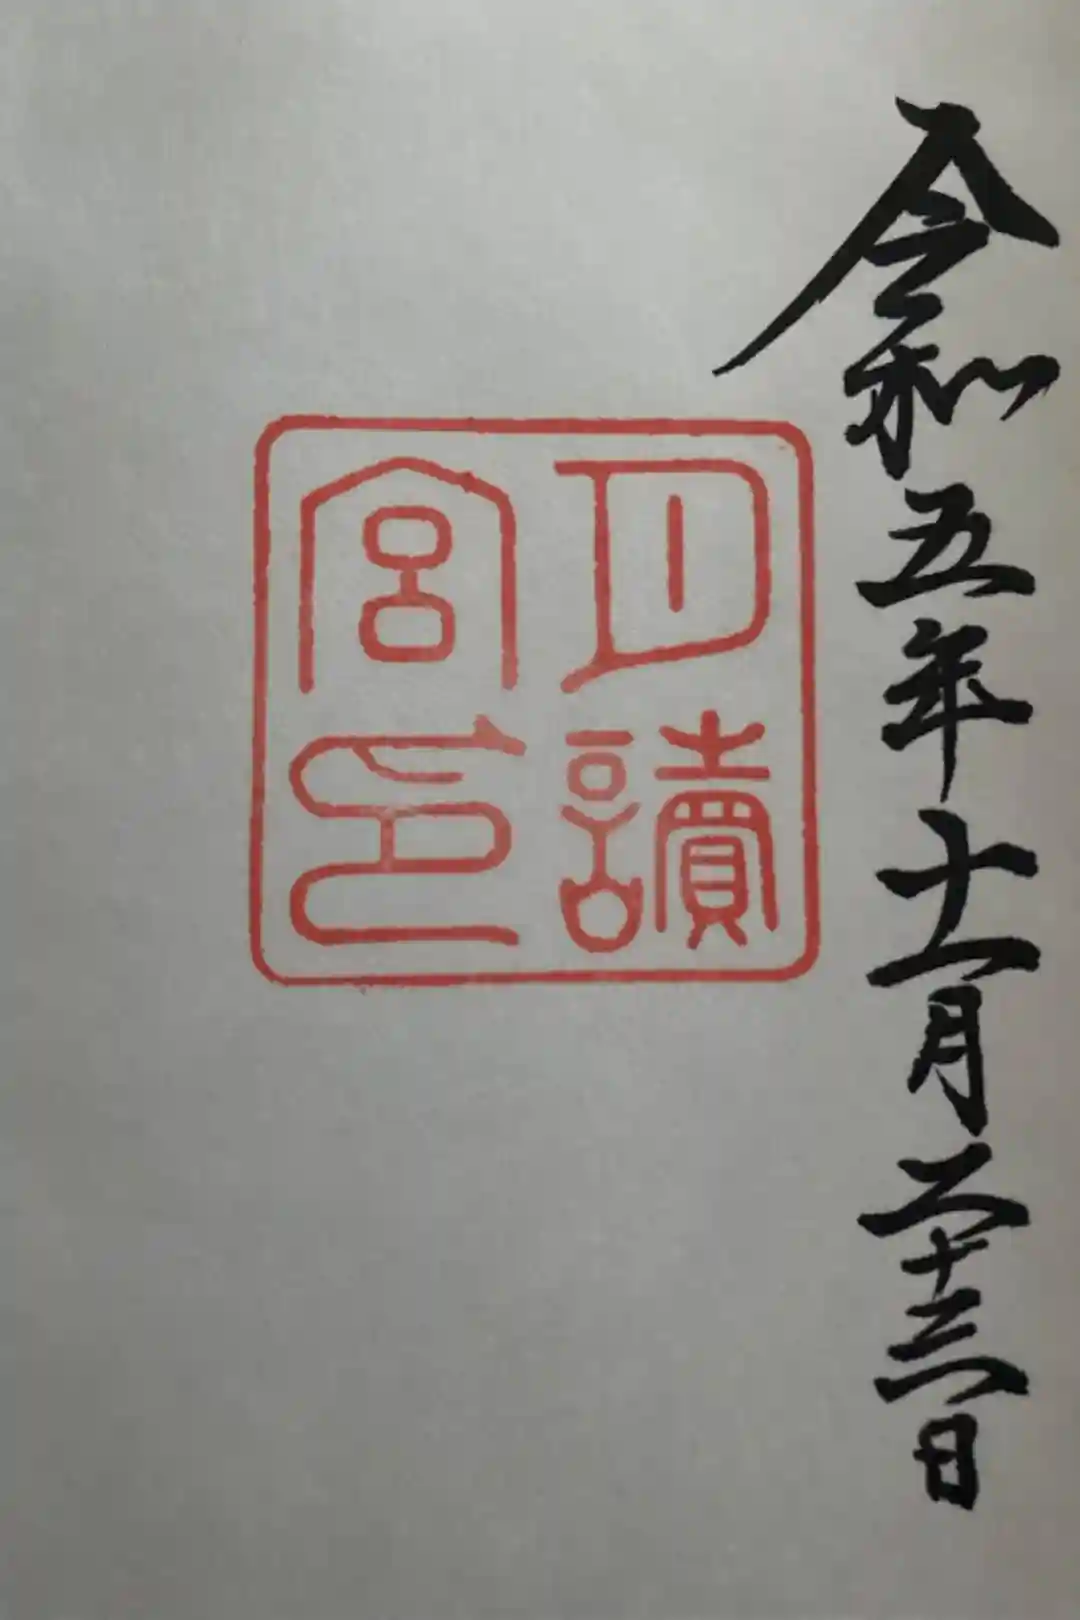 令和五年十一月二十三日
月讀
宮印